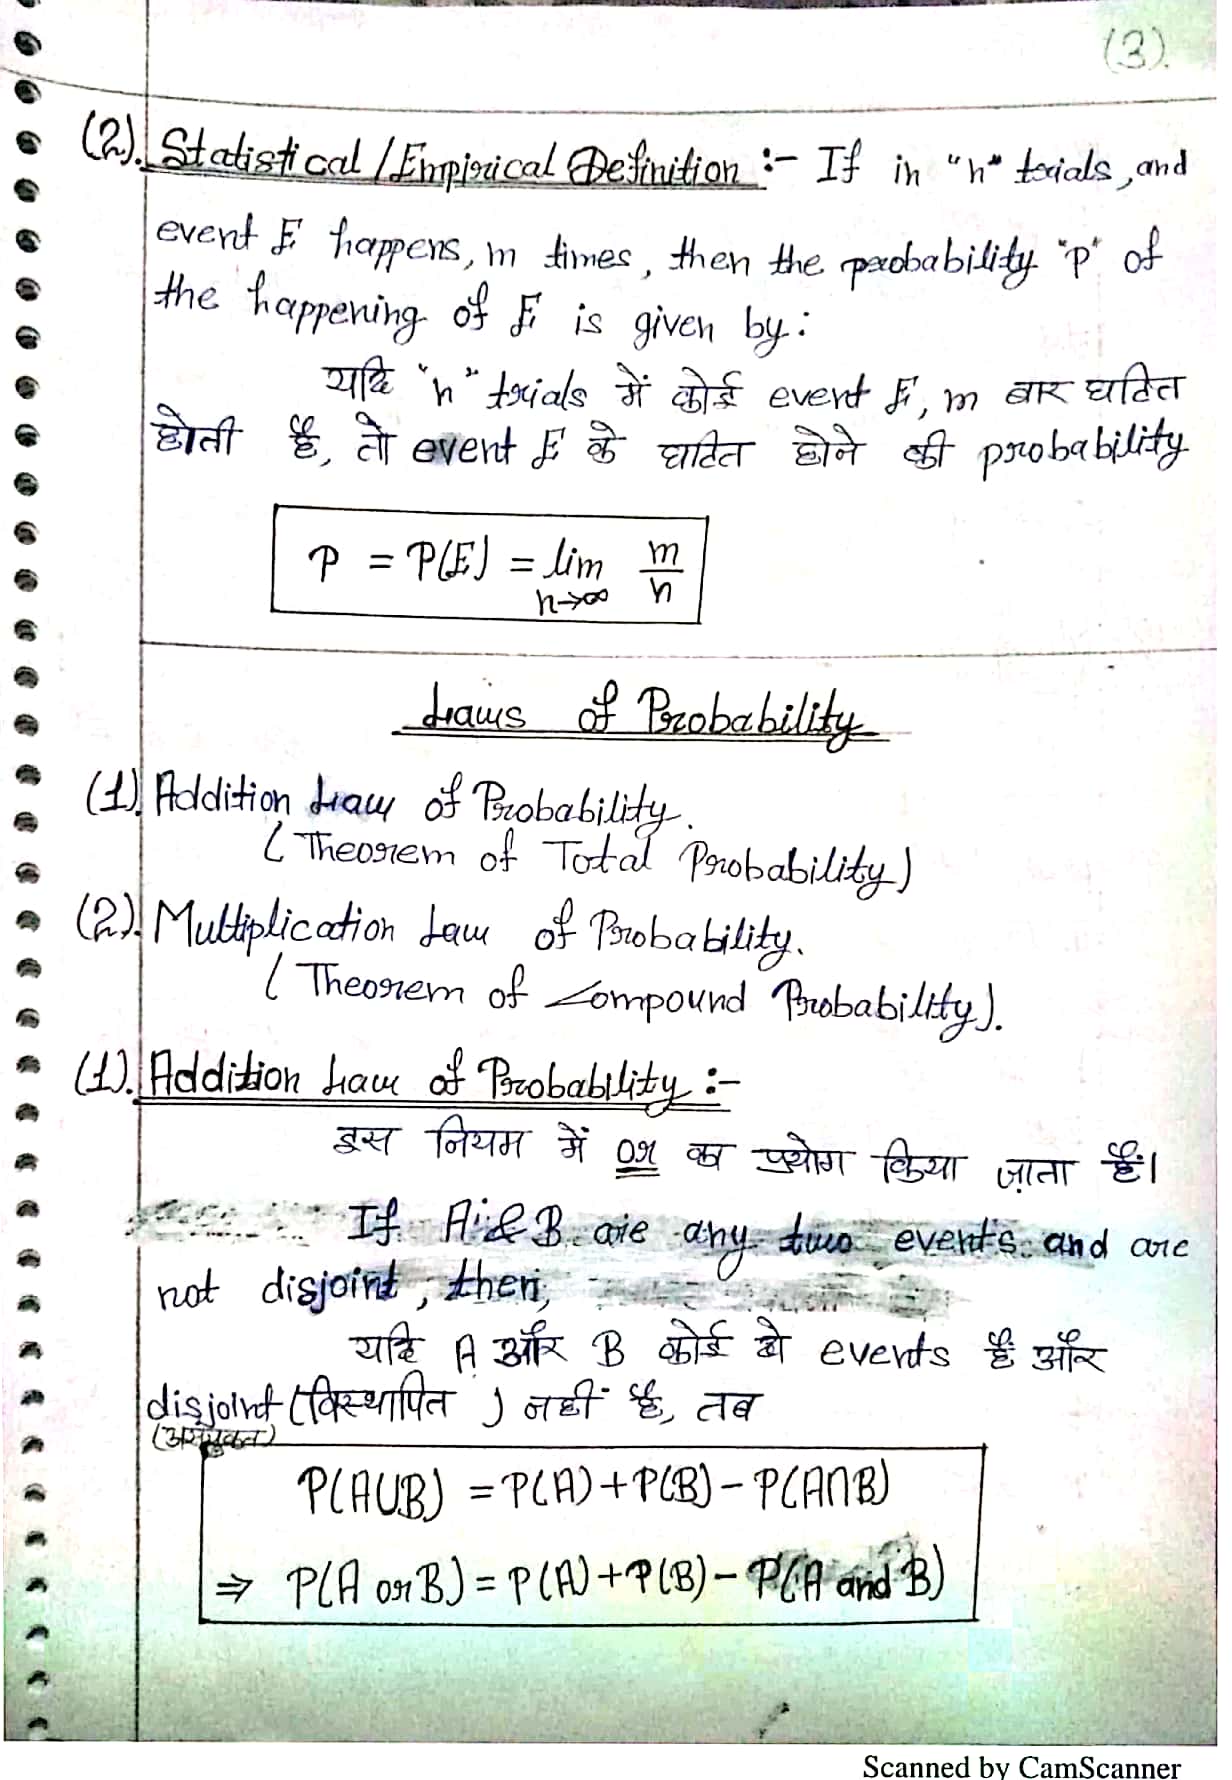 (3).
(2). Statistical / Empirical Definition :- If in "n" trials, and
event E happens, m times, then the probability "p" of
the happening of E is given by:
यदि "n" trials में कोई event E, m बार घटित
होती है, तो event E के घटित होने की probability
P = P(E) = lim n→∞ m/n
Laws of Probability
(1). Addition Law of Probability.
( Theorem of Total Probability)
(2). Multiplication Law of Probability.
( Theorem of Compound Probability).
(1). Addition Law of Probability :-
इस नियम में or का प्रयोग किया जाता है।
If A & B are any two events and are
not disjoint, then,
यदि A और B कोई दो events हैं और
disjoint (विस्थापित ) नहीं है, तब
(असंयुक्त)
P(A∪B) = P(A) + P(B) - P(A∩B)
⇒ P(A or B) = P(A) + P(B) - P(A and B)
Scanned by CamScanner